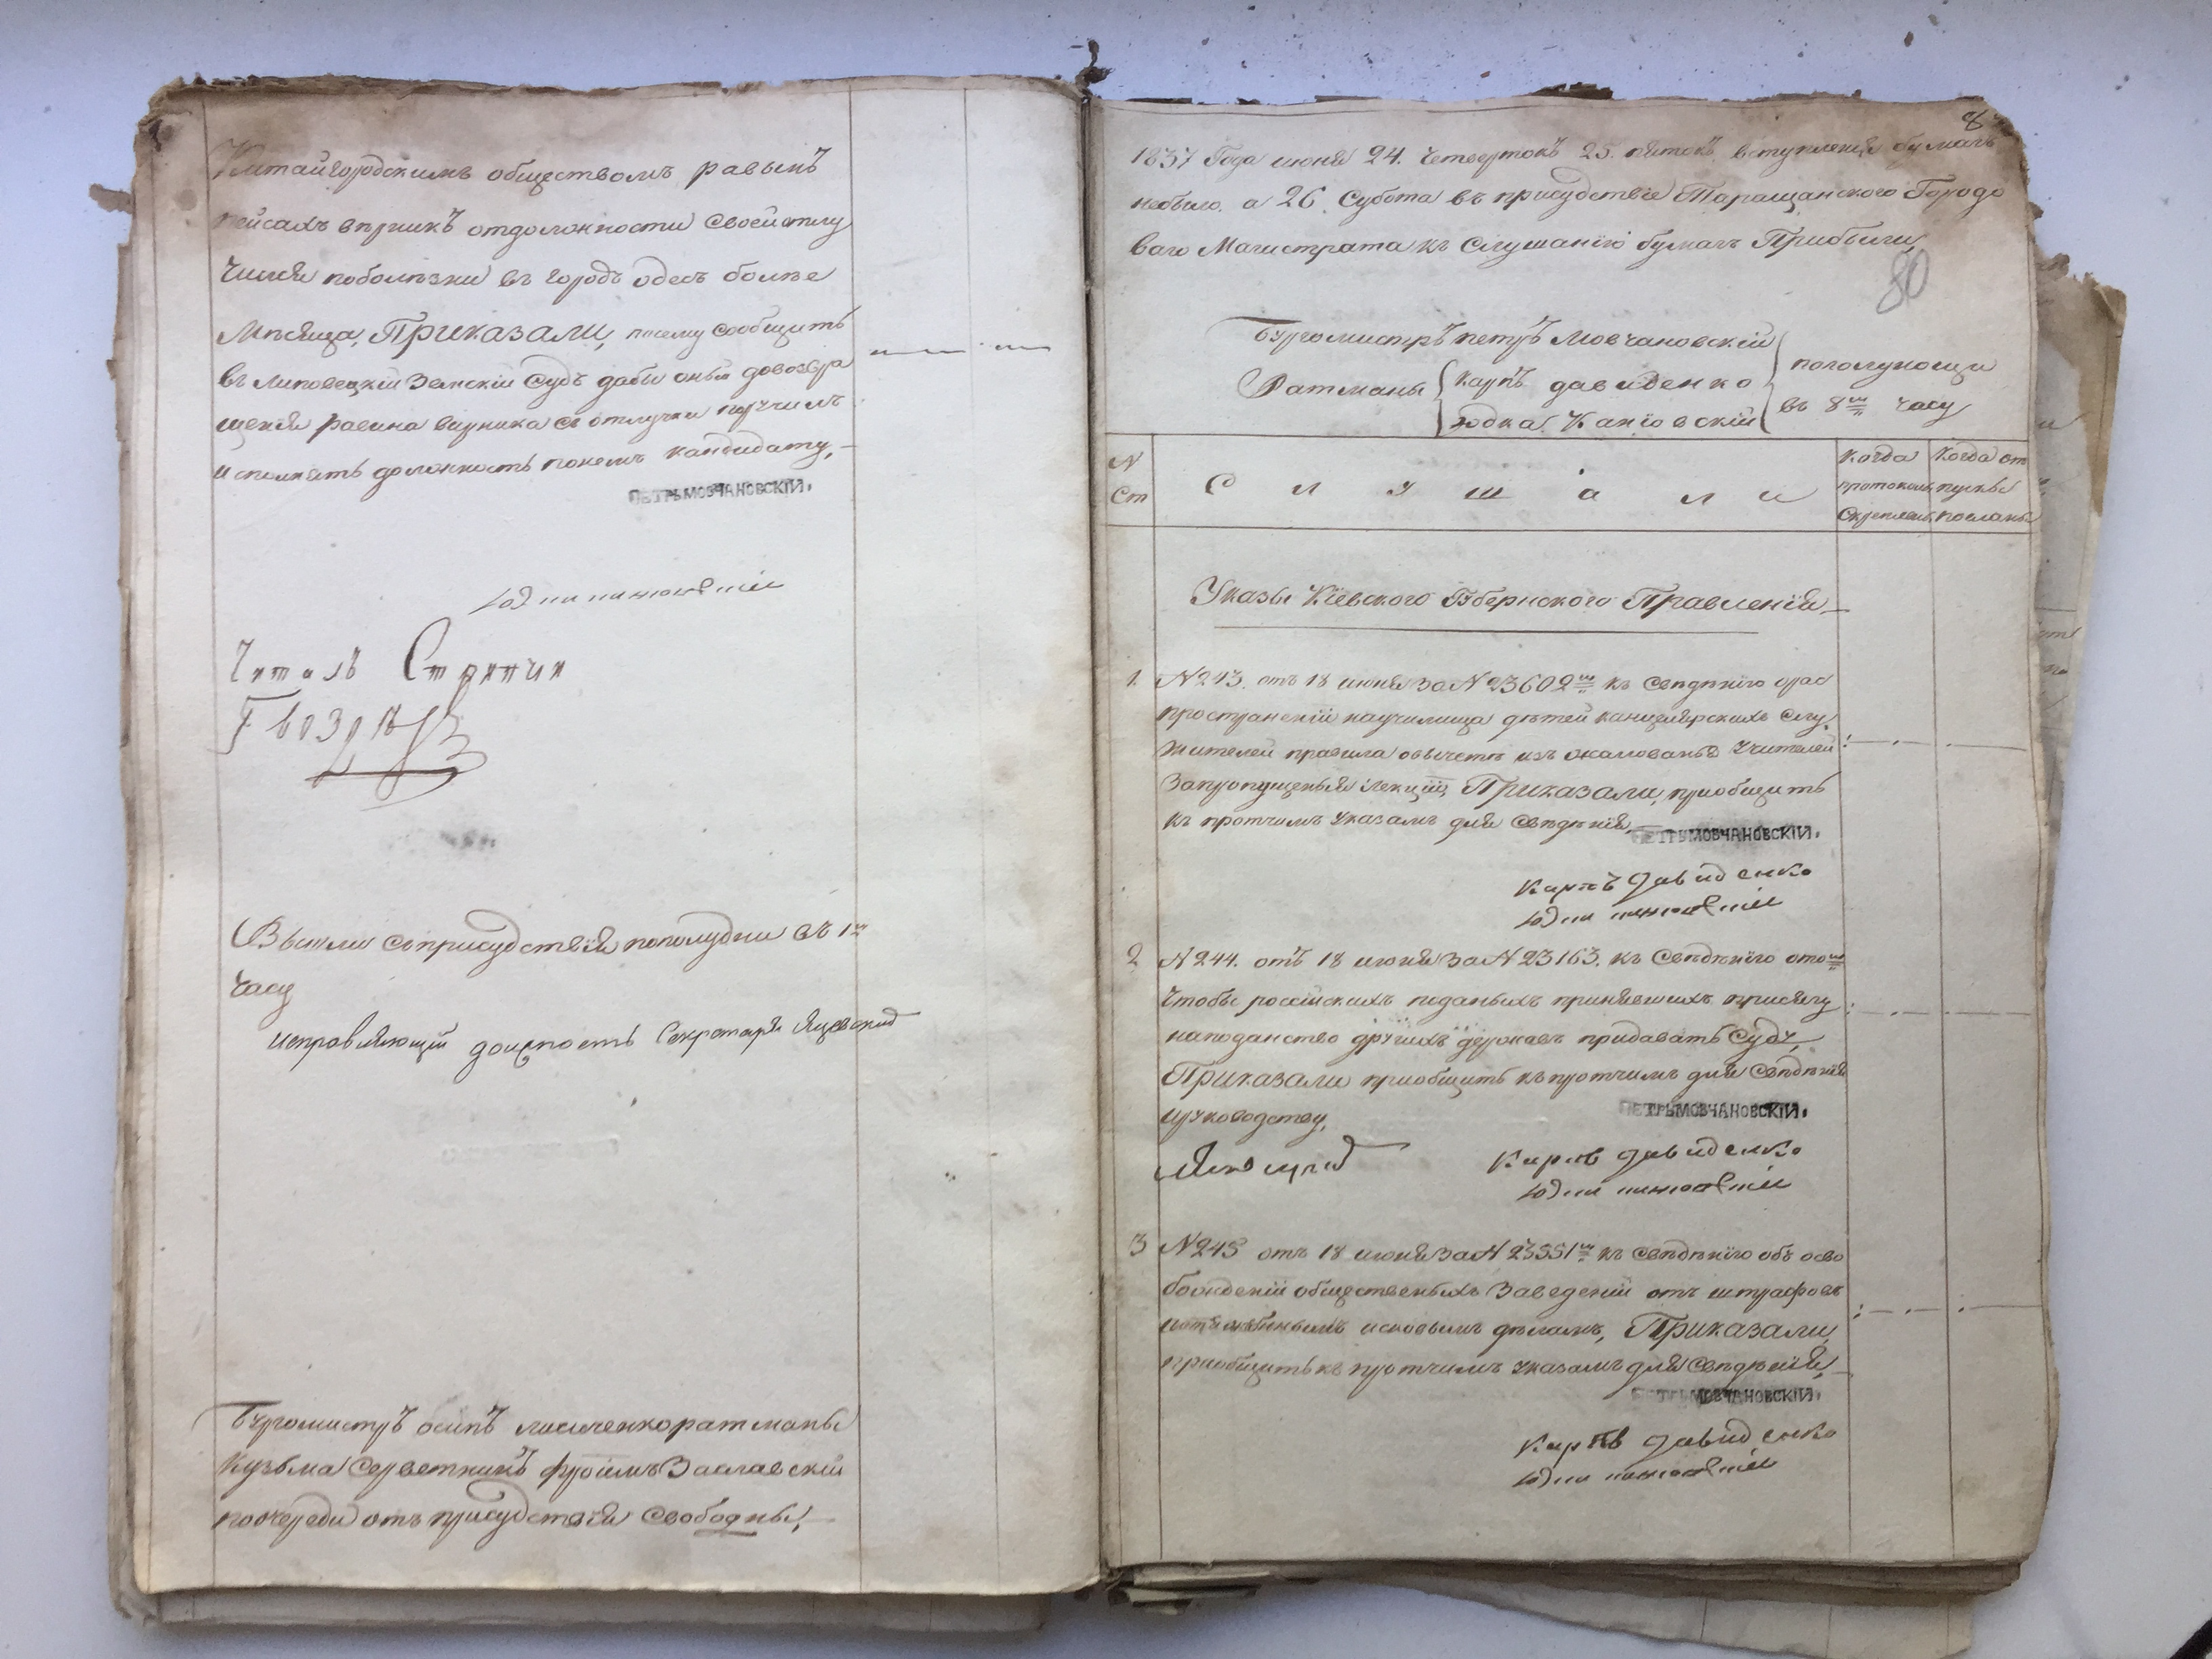 Китайгородскимъ обществомъ равынъ
пейсахъ вѣрникъ отдолжности своей отлу
чился поболѣзни въ городъ одесъ болѣе
Мѣсяца, Приказали, посему сообщить
въ липовецкій Земскій Судъ дабы оный довозвра
щенія равина вирника съ отлучки поручилъ
исполнять должность покемъ кандидату,
ПЕТРЪ МОВЧАНОВСКІЙ.
Читалъ Стряпчи
Гвозд
Вышли съприсудствія пополудни въ 1м
часу
исправляющій должность Секретаря Яцевский
Бургомистръ осипъ лисиченко ратманы
Кузьма Серветникъ фроимъ Заславскій
поочереди отъ присудствія свободны,
8
1837 Года июня 24. Четвертокъ 25. пятокъ вступленія бумагъ
небыло. а 26 Субота въ присудствіе Таращанского Городо
ваго Магистрата къ Слушанію бумагъ Прибыли,
80
Бургомистръ петръ Мовчановскій
Ратманы карпъ давиденко
юдка Каніовскій
пополуночи
въ 8м часу
N
Ст
С л у ш а л и
Когда
протоколъ
Скрепленъ
Когда от
пуски
посланы
Указы Кіевского Губернского Правленія
1. N 243. отъ 18 июня за N 23602м къ Сведенію орас
пространеніи научилища дѣтей канцелярскихъ Слу
жителей правила овычетѣ изъ жалованья Учителей
Запропущенныя лекціи, Приказали, приобщить
къ протчимъ Указамъ для Сведѣнія,
ПЕТРЪ МОВЧАНОВСКІЙ.
Карпъ Давиденко
2 N 244. отъ 18 июня за N 23163. къ Сведѣнію отом
чтобы россійскихъ подданыхъ принявшихъ присягу
наподанство другихъ державъ придавать Суду,
Приказали приобщить къ протчимъ для Сведѣнія
ируководству,
ПЕТРЪ МОВЧАНОВСКІЙ.
Карпъ Давиденко
3 N 245 отъ 18 июня за N 23551м къ сведѣнію объ осво
божденіи общественныхъ Заведеній отъ штрафовъ
исковымъ дѣламъ, Приказали,
приобщить къ протчимъ указамъ для Сведѣнія,
ПЕТРЪ МОВЧАНОВСКІЙ.
Карпъ Давиденко